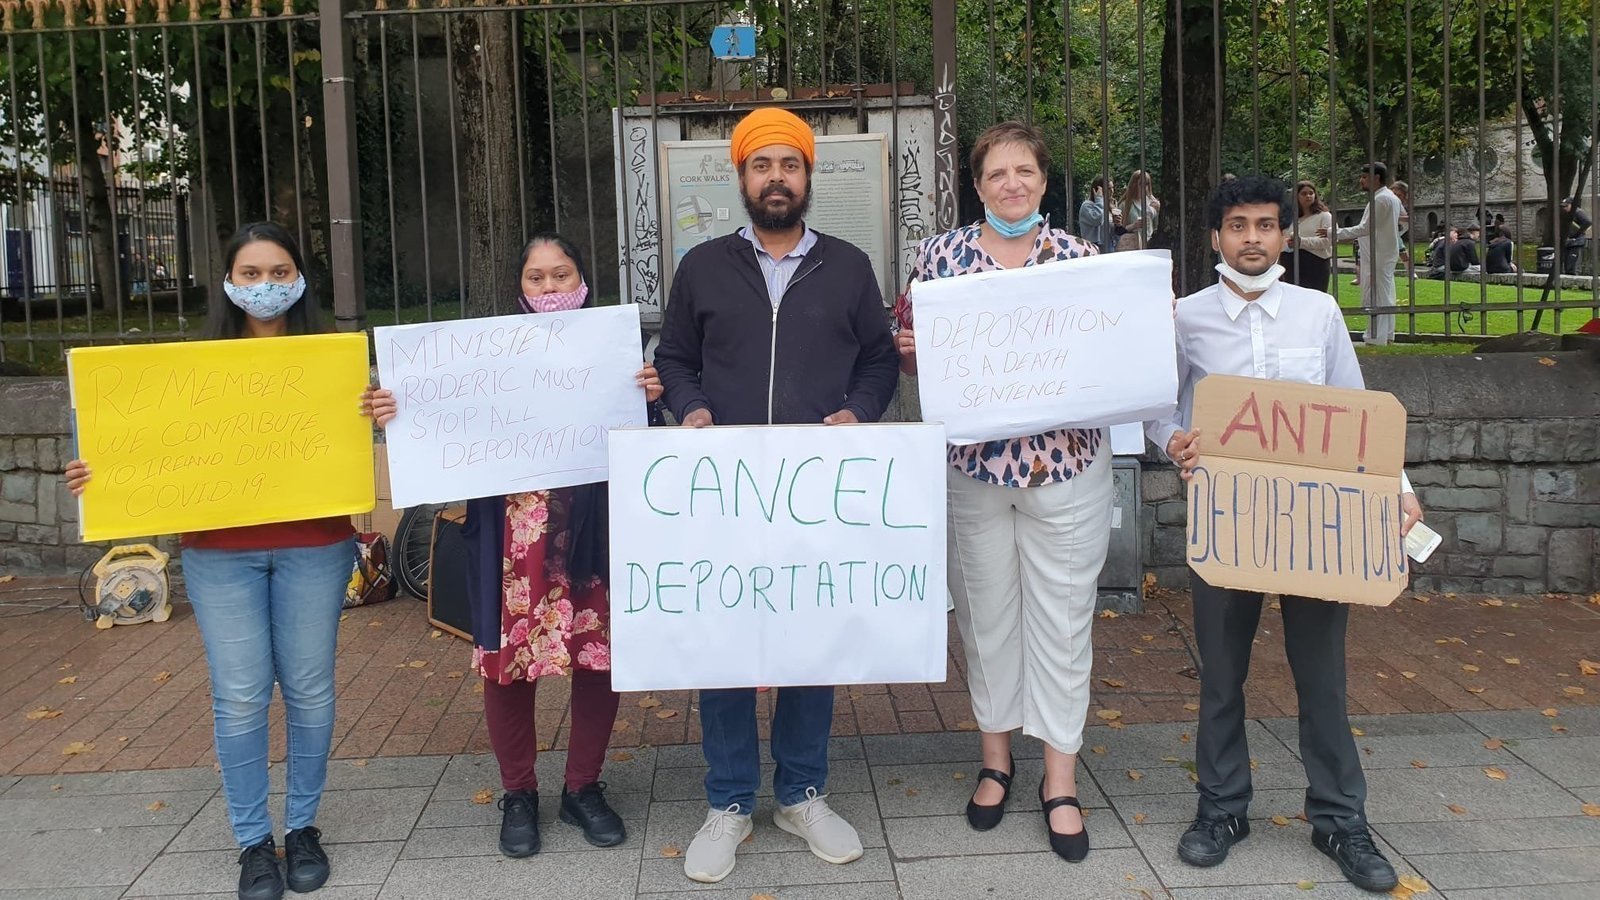 CORK WALKS
REMEMBER
WE CONTRIBUTE
TO IRELAND DURING
COVID-19-
MINISTER
RODERIC MUST
STOP ALL
DEPORTATIONS
CANCEL
DEPORTATION
DEPORTATION
IS A DEATH
SENTENCE —
ANTI
DEPORTATION